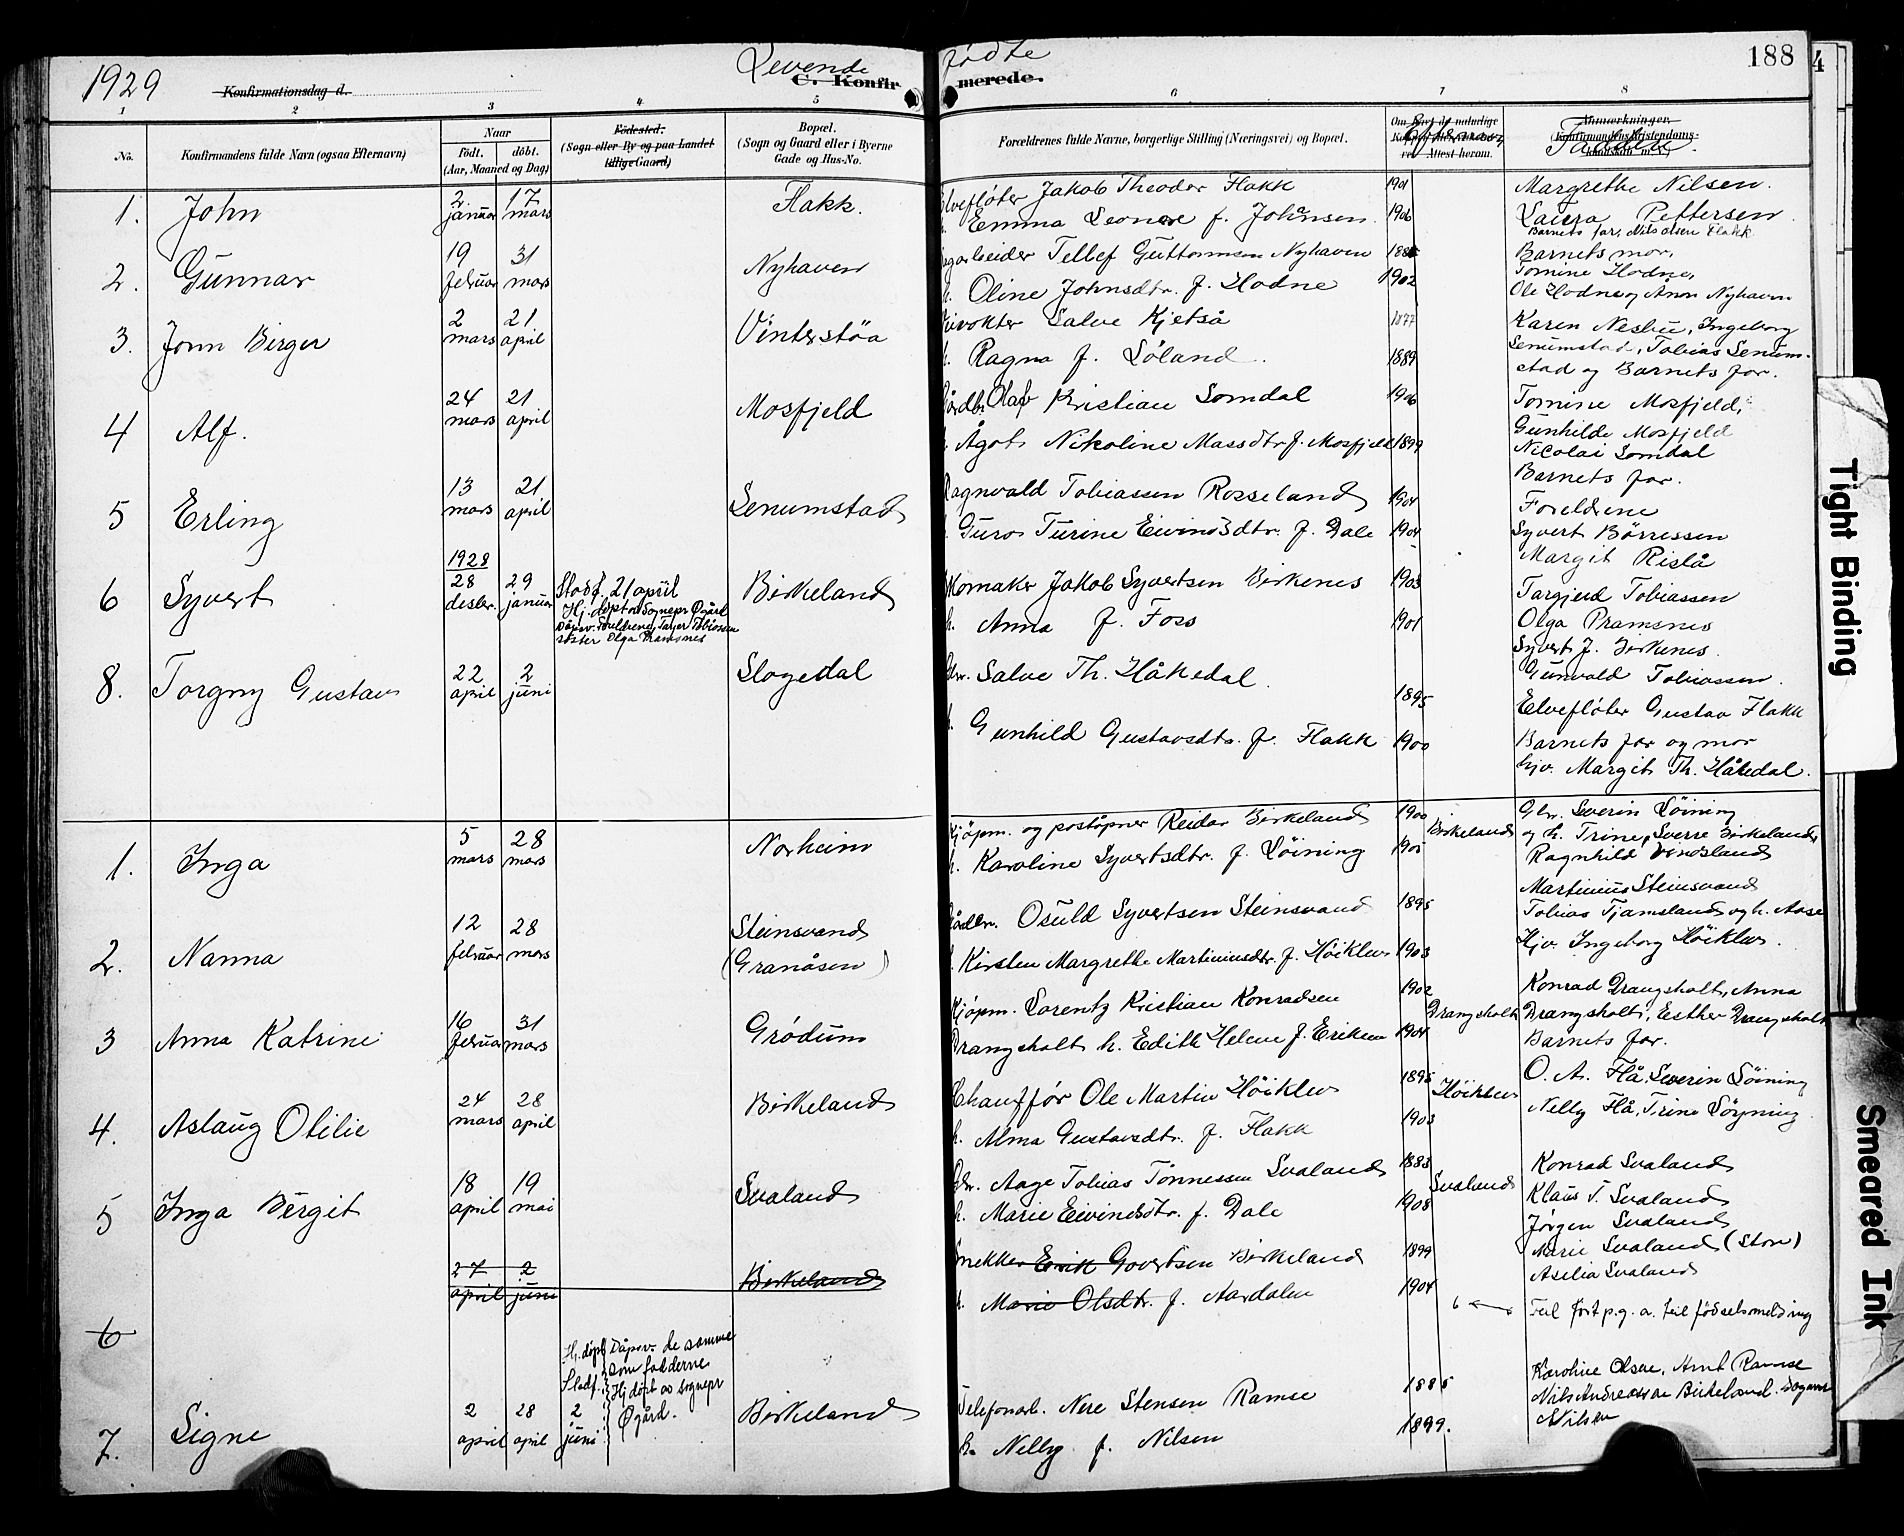 1929
Levende fødte
C. Konfirmerede.
188
4
Konfirmationsdag d.
1 2 3 4 5 6 7 8
No.
Konfirmandens fulde Navn (ogsaa Efternavn)
Naar
født. døbt.
(Aar, Maaned og Dag)
Fødested.
(Sogn eller By og paa Landet
tillige Gaard)
Bopæl.
(Sogn og Gaard eller i Byerne
Gade og Hus-No.
Forældrenes fulde Navne, borgerlige Stilling (Næringsvei) og Bopæl.
Anmærkninger.
Faddere.
1. John 2. januar 17 mars Flakk.
Elvefløter Jakob Theodor Flakk 1901
h. Emma Leonore f. Johnsen. 1906
Margrethe Nilsen.
Laura Pettersen
Barnets far, Nils Olsen Flakk
2. Gunnar 19 februar 31 mars Nyhaven
Tellef Guttormsen Nyhaven
h. Oline Johnsdtr. f. Hodne 1902
Barnets mor,
Tomine Hodne,
Ole Hodne og Ånon Nyhaven
3. Jonn Birger 2 mars 21 april Vinterstøa
Salve Kjetså 1877
h. Ragna f. Løland. 1889
Karen Nesbu, Ingeborg
Senumstad, Tobias Senum-
stad og Barnets far.
4 Alf. 24 mars 21 april Mosfjeld
Gårdbr. Olaf Kristian Somdal 1906
h. Ågot Nikoline Massdtr. f. Mosfjeld 1899
Tomine Mosfjeld,
Gunhilde Mosfjeld
Nicolai Somdal
Barnets far.
5 Erling 13 mars 21 april Senumstad
Ragnvald Tobiassen Rosseland 1904
h. Guro Turine Eivindsdtr. f. Dale 1904
Foreldrene
Syvert Børressen
Margit Rislå
6 Syvert 1928 28 desbr. 29 januar
Stadf. 21 april
Hj. døpt av Sognepr Øgård
Dåpsv. Foreldrene, Tarjer Tobiassen
søster Olga Pramsnes
Birkeland
Skomaker Jakob Syvertsen Birkenes 1903
h. Anna f. Foss 1901
Targjerd Tobiassen
Olga Pramsnes
Syvert J. Birkenes.
Gunvald Tobiassen.
8. Torgny Gustav 22 april 2 juni Slogedal
Gbr. Salve Th. Håkedal. 1895
h. Gunhild Gustavsdtr. f. Flakk 1900
Elvefløter Gustav Flakk
Barnets far og mor
hjv. Margit Th. Håkedal.
1. Inga 5 mars 28 mars Norheim
Kjøpm. og postopner Reidar Birkeland 1900
h. Karoline Syvertsdtr. f. Løining 1905
Birkeland
Gbr. Severin Løining
og h. Trine, Sverre Birkeland
Ragnhild Vindsland
2. Nanna 12 februar 28 mars Steinsvand
(Granåsen)
Gårdbr. Osuld Syvertsen Steinsvand 1895
h. Kirsten Margrethe Martiniusdtr. f. Høiklev 1903
Martinius Steinsvand
Tobias Tjamsland og h. Aase
Hjv. Ingeborg Høiklev.
3 Anna Katrine 16 februar 31 mars Grødum
Kjøpm. Lorentz Kristian Konradsen 1902
Drangsholt h. Edith Helene f. Eriksen 1904
Drangsholt
Konrad Drangsholt, Anna
Drangsholt, Esther Drangsholt
Barnets far.
4. Aslaug Otilie 24 mars 28 april Birkeland
Chauffør Ole Martin Høiklev 1895
h. Alma Gustavsdtr. f. Flakk 1903
Høiklev
O. A. Flå, Severin Løining
Nelly Flå, Trine Løyning.
5 Inga Bergit 18 april 19 mai Svaland
Gbr. Aage Tobias Tønnessen Svaland 1883
h. Marie Eivindsdtr. f. Dale 1908
Svaland
Konrad Svaland
Klaus T. Svaland
Jørgen Svaland
Marie Svaland (Stow)
Asilia Svaland
6 27 april 2 juni Birkeland
Snekker Erik Govertsen Birkeland 1899
h. Marie Olsdtr. f. Aardalen 1904
6 ← Feil ført p.g.a. feil fødselsmelding
7. Signe 2 april 28 april
Hj. døpt
Stadf. 2 juni
Dåpsv. de samme
som fadderne
Hj. døpt av sognepr
Øgård.
Birkeland
Telefonarb. Nere Stensen Ramse 1885
h. Nelly f. Nilsen 1899.
Karoline Olsen, Arnt Ramse
Nils Andreassen Birkeland. Dagmar
Nilsen
Tight Binding
Smeared Ink